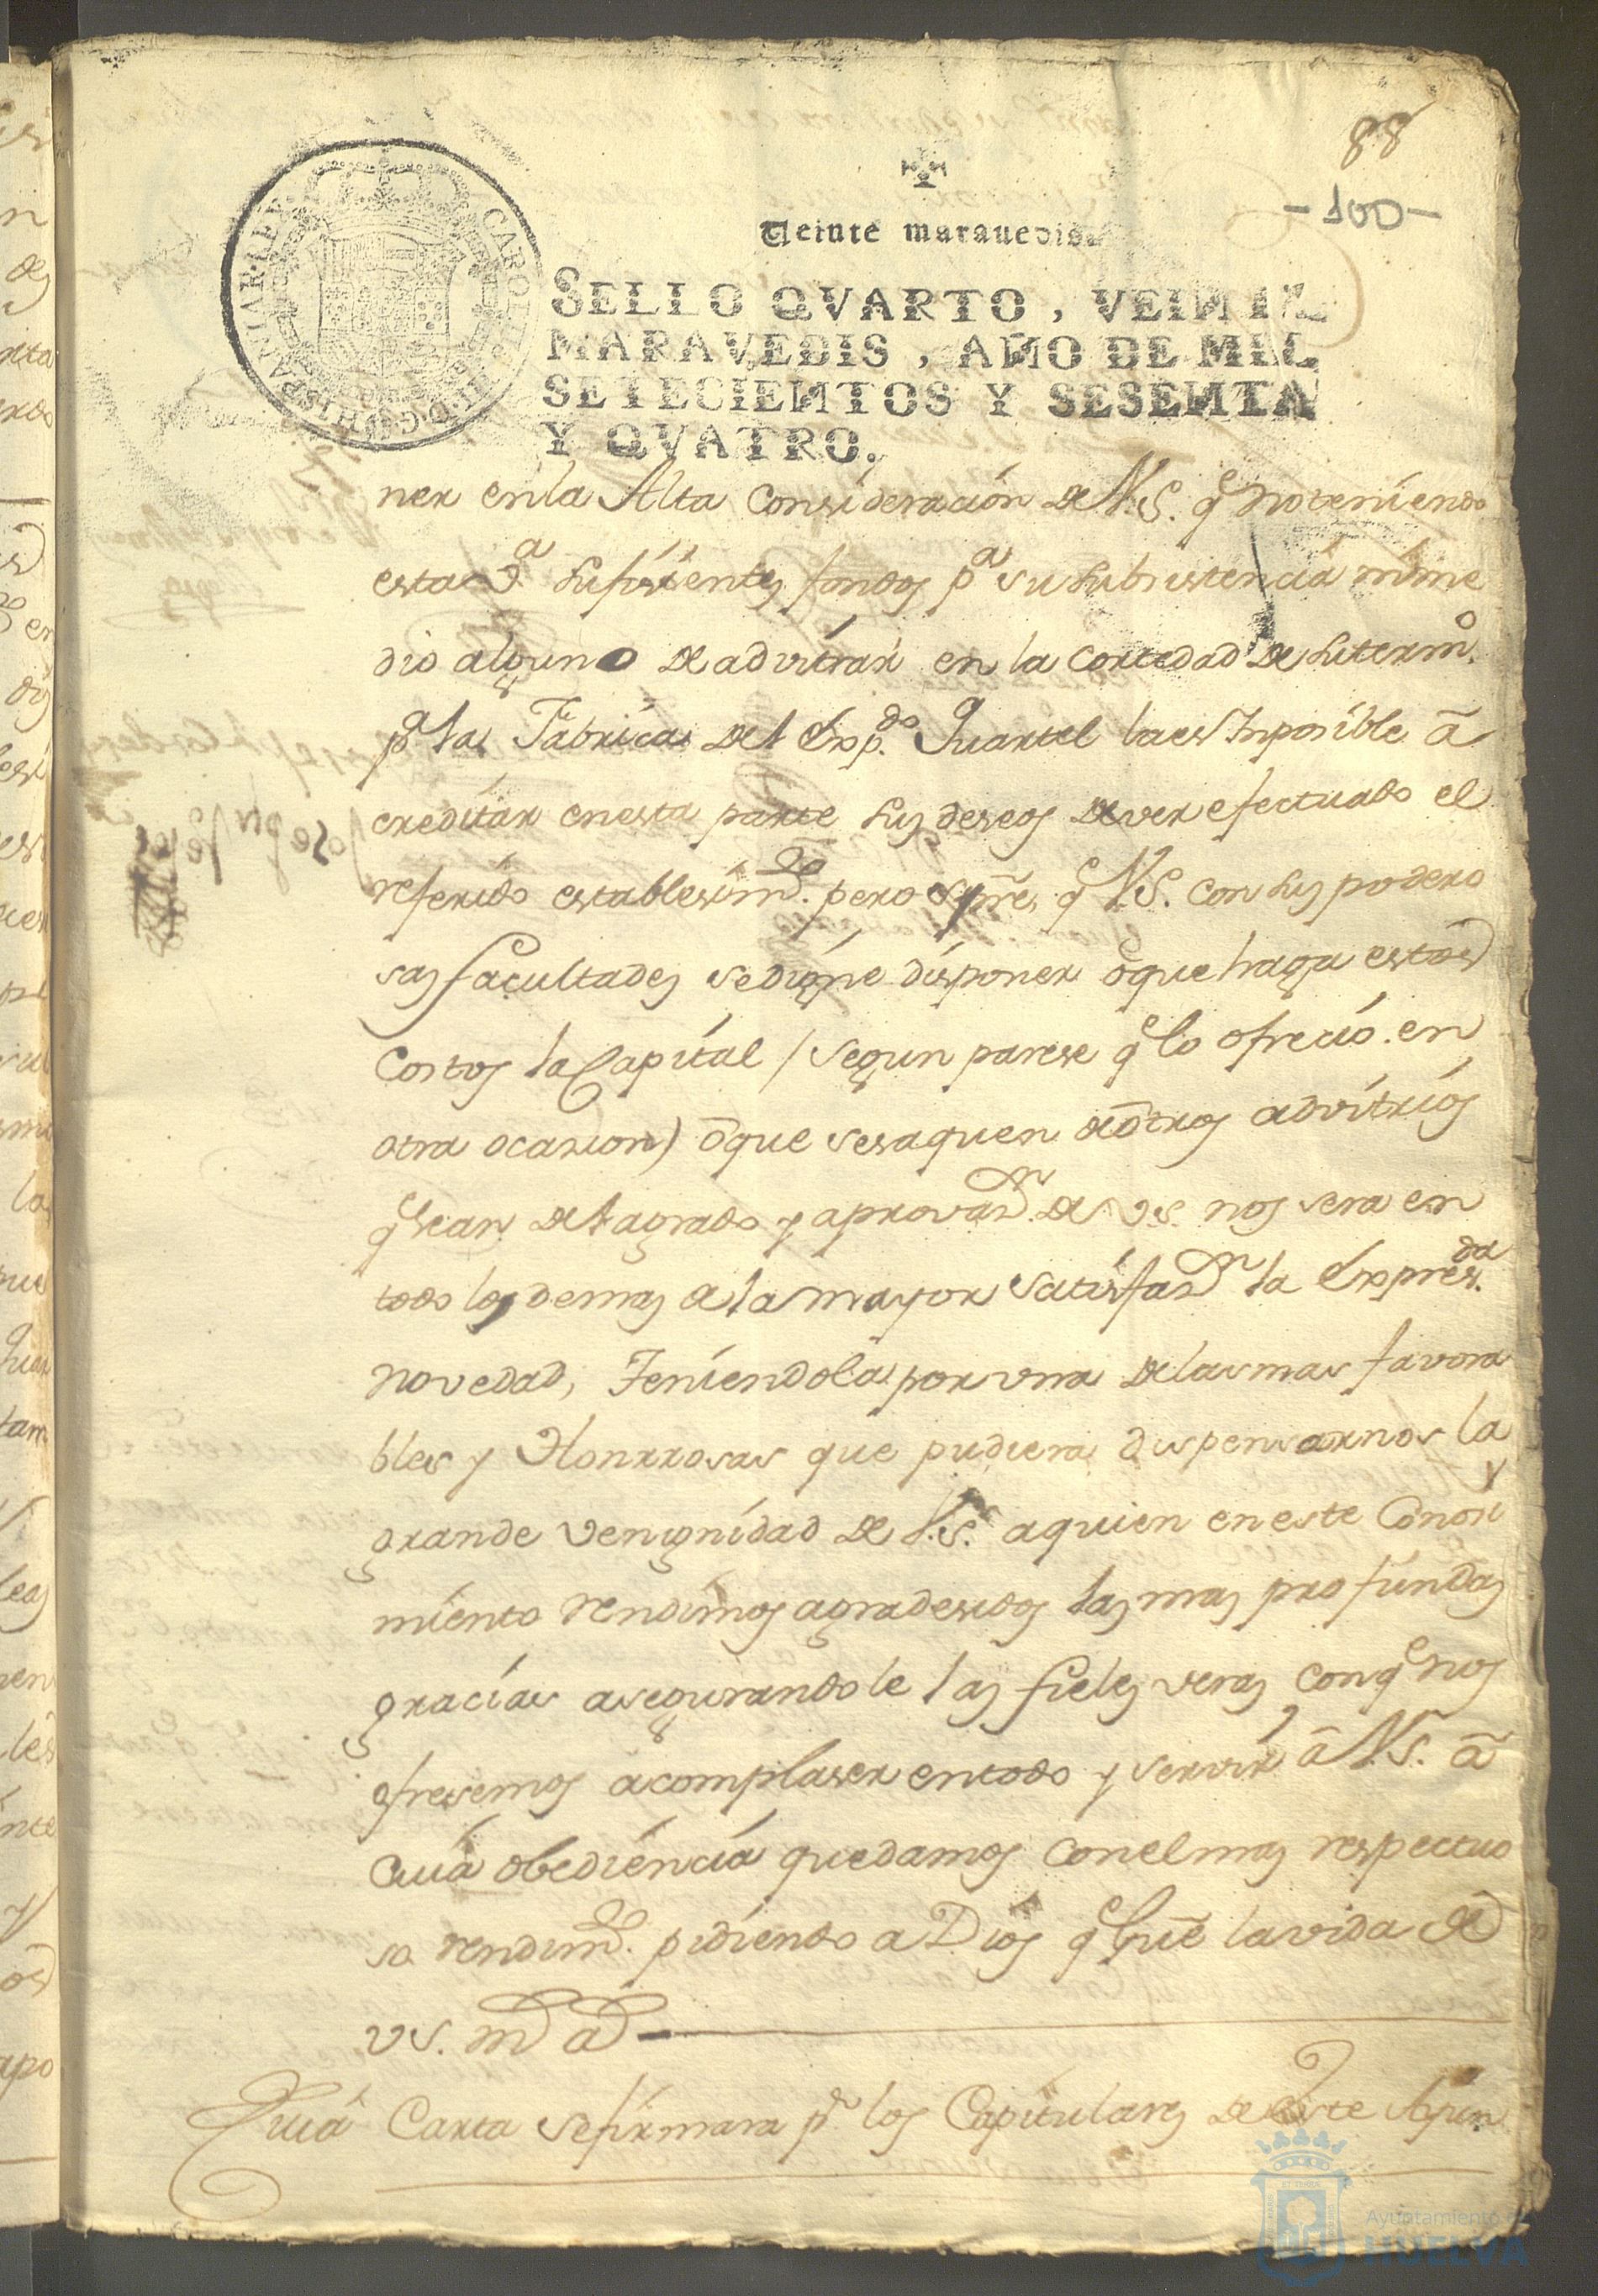 88
- 100 -
Veinte maravedis.
SELLO QVARTO, VEINTE
MARAVEDIS, AÑO DE MIL
SETECIENTOS Y SESENTA
Y QVATRO.
CAROLVS III D.G. HISPANIAR. REX
ner en la Alta Consideración de V.S. q̃ no teniendo
esta v.ª sufisientes fondos p.ª su subsistencia ni me
dio alguno de advitrar en la cortedad de su term.º
p.ª la Fabrica del Exp.do Quartel la es Inposible ā
creditar en esta parte sus deseos de ver efectuado el
referido establesim.to pero spr̃e q̃ V.S. con sus podero
sas facultades se digne disponer ō que haga estos
Costos la Capital / segun parese q̃ lo ofrecio en
otra ocasion) ō que se saquen de ōtros advitrios
q̃ sean del agrado y aprovaz.n de V.S. nos sera en
todo lo demas de la mayor satisfaz.n la Expres.da
novedad, Teniendola por vna de las mas favora
bles y Honrrosas que pudiera dispensarnos la
grande venignidad de V.S. a quien en este Conosi
miento rendimos agradesidos las mas profundas
gracias asegurandole las fieles veras con q̃ nos
ofresemos a complaser en todo y servir ā V.S. ā
cuia obediencia quedamos con el mas respectuo
so rendim.to pidiendo a Dios q̃ gue la vida de
VS. m.s a.s
Cuia Carta se firmara p.r los Capitulares de este Ayun
Ayuntamiento de
HUELVA